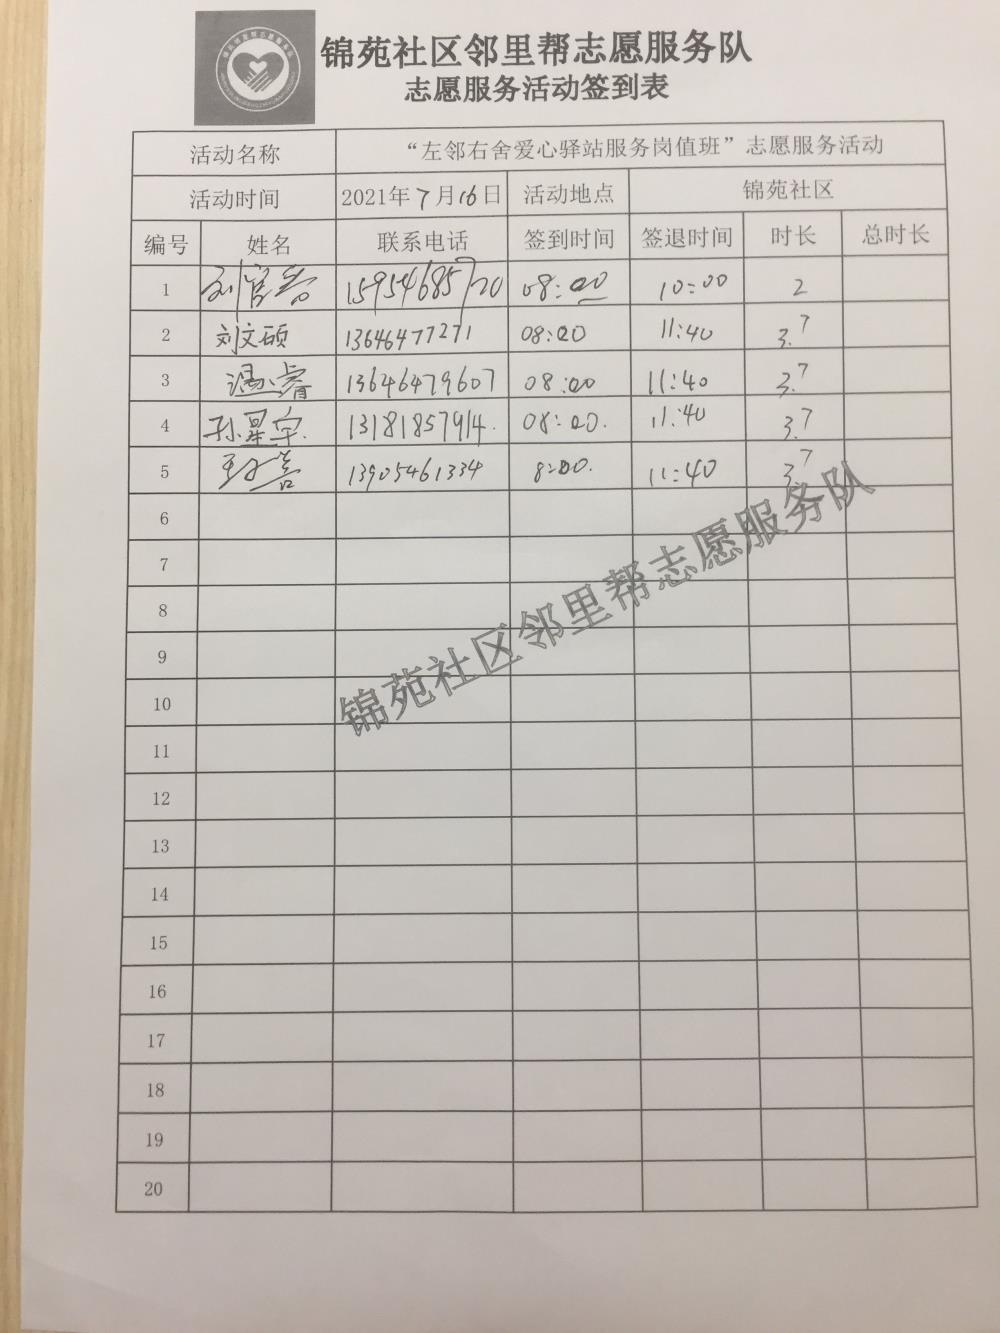 锦苑社区邻里帮志愿服务队
志愿服务活动签到表
活动名称 “左邻右舍爱心驿站服务岗值班”志愿服务活动
活动时间 2021年7月16日 活动地点 锦苑社区
编号 姓名 联系电话 签到时间 签退时间 时长 总时长
1 刘官春 15954685720 08:00 10:00 2
2 刘文硕 13646477271 08:00 11:40 3.7
3 温睿 13646479607 08:00 11:40 3.7
4 孙星宇 13181857914 08:00 11:40 3.7
5 13905461334 8:00 11:40 3.7
6
7
8
9
10
11
12
13
14
15
16
17
18
19
20
锦苑社区邻里帮志愿服务队